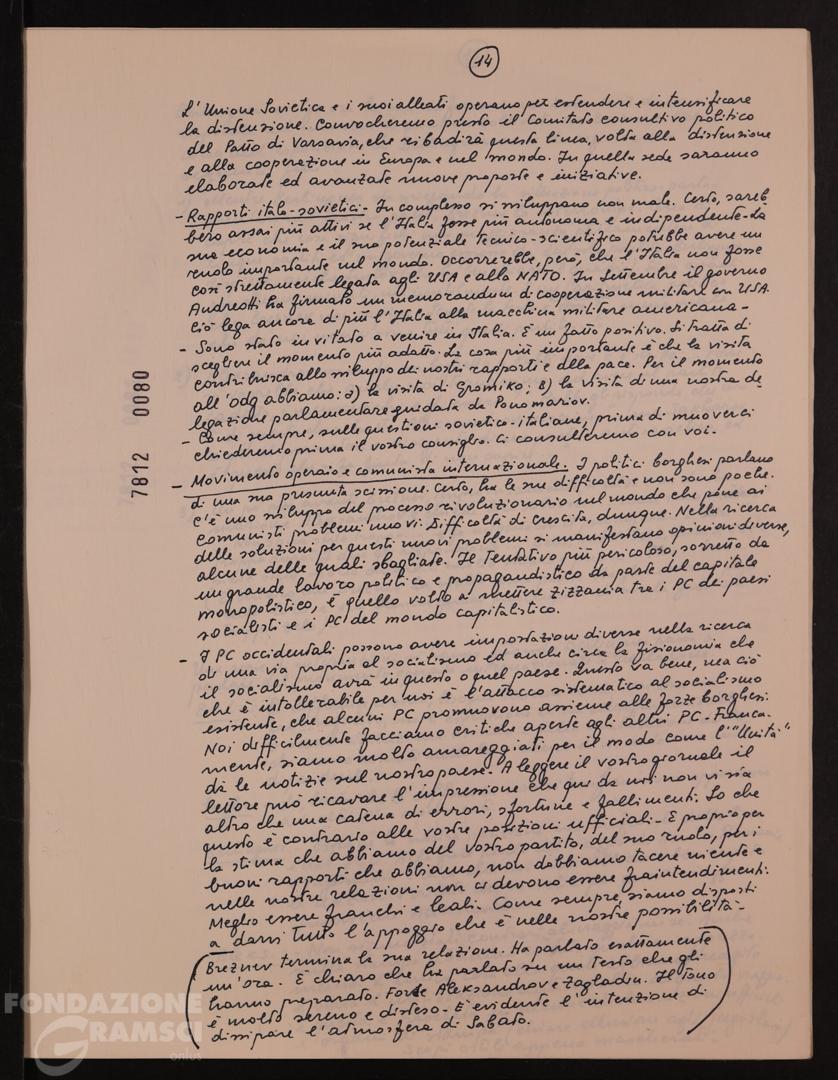 14
L'Unione Sovietica e i suoi alleati operano per estendere e intensificare
la distensione. Convocheremo presto il Comitato consultivo politico
del Patto di Varsavia, che ribadirà questa linea, volta alla distensione
e alla cooperazione in Europa e nel mondo. In quella sede saranno
elaborate ed avanzate nuove proposte e iniziative.
- Rapporti italo-sovietici - In complesso si sviluppano non male. Certo, sareb
bero assai più attivi se l'Italia fosse più autonoma e indipendente - La
sua economia e il suo potenziale tecnico-scientifico potrebbe avere un
ruolo importante nel mondo. Occorrerebbe, però, che l'Italia non fosse
così strettamente legata agli USA e alla NATO. In settembre il governo
Andreotti ha firmato un memorandum di cooperazione militare con USA.
Ciò lega ancora di più l'Italia alla macchina militare americana -
- Sono stato invitato a venire in Italia. È un fatto positivo. Si tratta di
scegliere il momento più adatto. La cosa più importante è che la visita
contribuisca allo sviluppo dei nostri rapporti e della pace. Per il momento
all'odg abbiamo: a) la visita di Gromiko; b) la visita di una nostra de
legazione parlamentare guidata da Ponomariov.
- Come sempre, sulle questioni sovietico-italiane, prima di muoverci
chiederemo prima il vostro consiglio. Ci consulteremo con voi.
- Movimento operaio e comunista internazionale. I politici borghesi parlano
di una sua presunta scissione. Certo, ha le sue difficoltà e non sono poche.
C'è uno sviluppo del processo rivoluzionario nel mondo che pone ai
comunisti problemi nuovi. Difficoltà di crescita, dunque. Nella ricerca
delle soluzioni per questi nuovi problemi si manifestano opinioni diverse,
alcune delle quali sbagliate. Il tentativo più pericoloso, sorretto da
un grande lavoro politico e propagandistico da parte del capitale
monopolistico, è quello volto a mettere zizzania tra i PC dei paesi
socialisti e i PC del mondo capitalistico.
- I PC occidentali possono avere impostazioni diverse nella ricerca
di una via propria al socialismo ed anche circa la fisionomia che
il socialismo avrà in questo o quel paese. Questo va bene, ma ciò
che è intollerabile per noi è l'attacco sistematico al socialismo
esistente, che alcuni PC promuovono assieme alle forze borghesi.
Noi difficilmente facciamo critiche aperte agli altri PC - Franca-
mente, siamo molto amareggiati per il modo come l'"Unità"
dà le notizie sul nostro paese. A leggere il vostro giornale il
lettore può ricavare l'impressione che qui da noi non vi sia
altro che una catena di errori, sfortune e fallimenti. So che
questo è contrario alle vostre posizioni ufficiali - E proprio per
la stima che abbiamo del vostro partito, del suo ruolo, per i
buoni rapporti che abbiamo, non dobbiamo tacere niente e
nelle nostre relazioni non ci devono essere fraintendimenti.
Meglio essere franchi e leali. Come sempre, siamo disposti
a darvi tutto l'appoggio che è nelle nostre possibilità -
(Breznev termina la sua relazione. Ha parlato esattamente
un'ora. È chiaro che ha parlato su un testo che gli
hanno preparato. Forse Aleksandrov e Zagladin. Il tono
è molto sereno e disteso. È evidente l'intenzione di
dissipare l'atmosfera di Sabato.)
7812 0080
FONDAZIONE
GRAMSCI
onlus